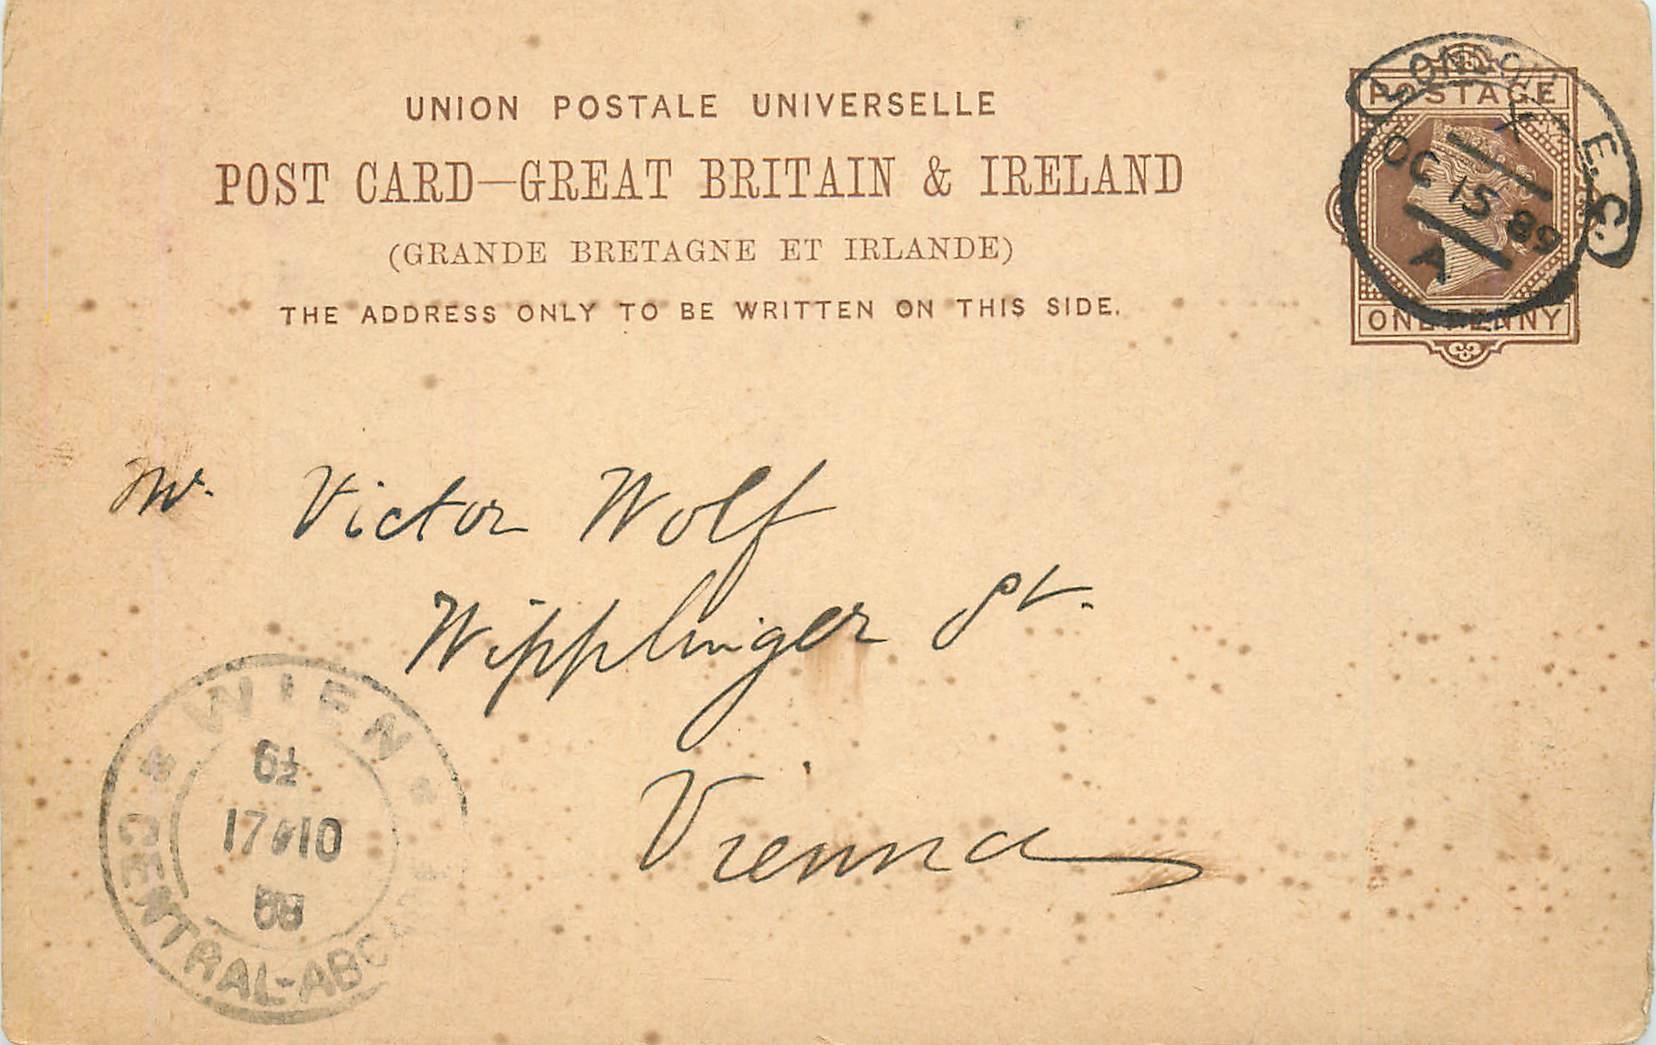 UNION POSTALE UNIVERSELLE
POST CARD—GREAT BRITAIN & IRELAND
(GRANDE BRETAGNE ET IRLANDE)
THE ADDRESS ONLY TO BE WRITTEN ON THIS SIDE.
POSTAGE
ONE PENNY
LONDON E.C.
X
OC 15 89
A
Mr. Victor Wolf
Wipplinger St.
Vienna
WIEN
17 10
89
CENTRAL-